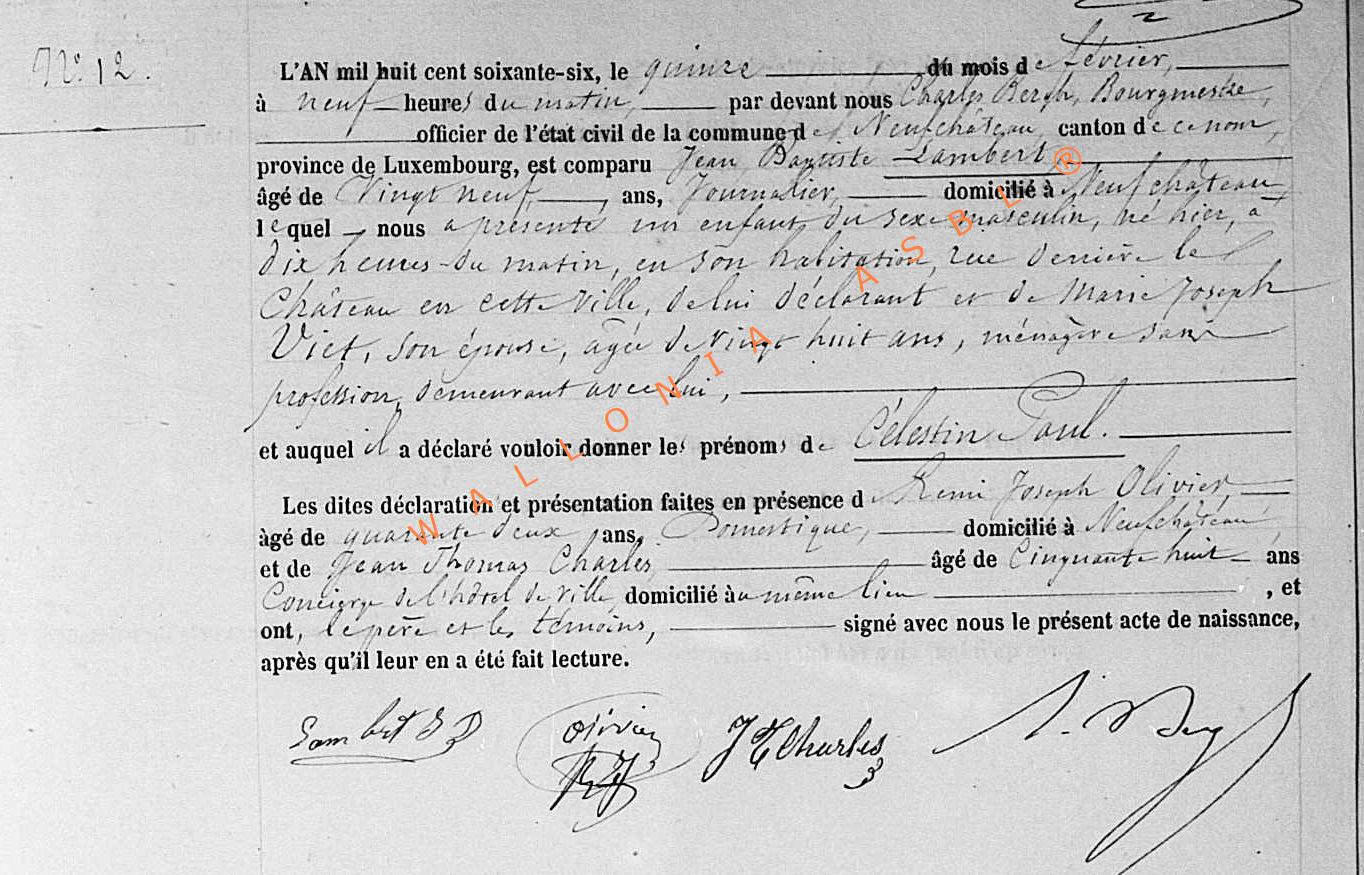 N° 12.
L'AN mil huit cent soixante-six, le quinze du mois de février,
à neuf heures du matin, par devant nous Charles Bergh, Bourgmestre,
officier de l'état civil de la commune de Neufchâteau, canton de ce nom,
province de Luxembourg, est comparu Jean Baptiste Lambert,
âgé de Vingt neuf ans, Journalier, domicilié à Neufchâteau
lequel nous a présenté un enfant du sexe masculin, né hier, à
dix heures du matin, en son habitation, rue derrière le
Château en cette ville, de lui déclarant et de Marie Joseph
Viet, son épouse, âgée de vingt huit ans, ménagère sans
profession, demeurant avec lui,
et auquel il a déclaré vouloir donner les prénoms de Célestin Paul.
Les dites déclaration et présentation faites en présence d Remi Joseph Olivier,
âgé de quarante deux ans, Domestique, domicilié à Neufchâteau
et de Jean Thomas Charles, âgé de Cinquante huit ans
Concierge de l'hôtel de ville, domicilié au même lieu, et
ont, le père et les témoins, signé avec nous le présent acte de naissance,
après qu'il leur en a été fait lecture.
Lambert J B
Olivier
R J
J T Charles
WALLONIA ASBL ®